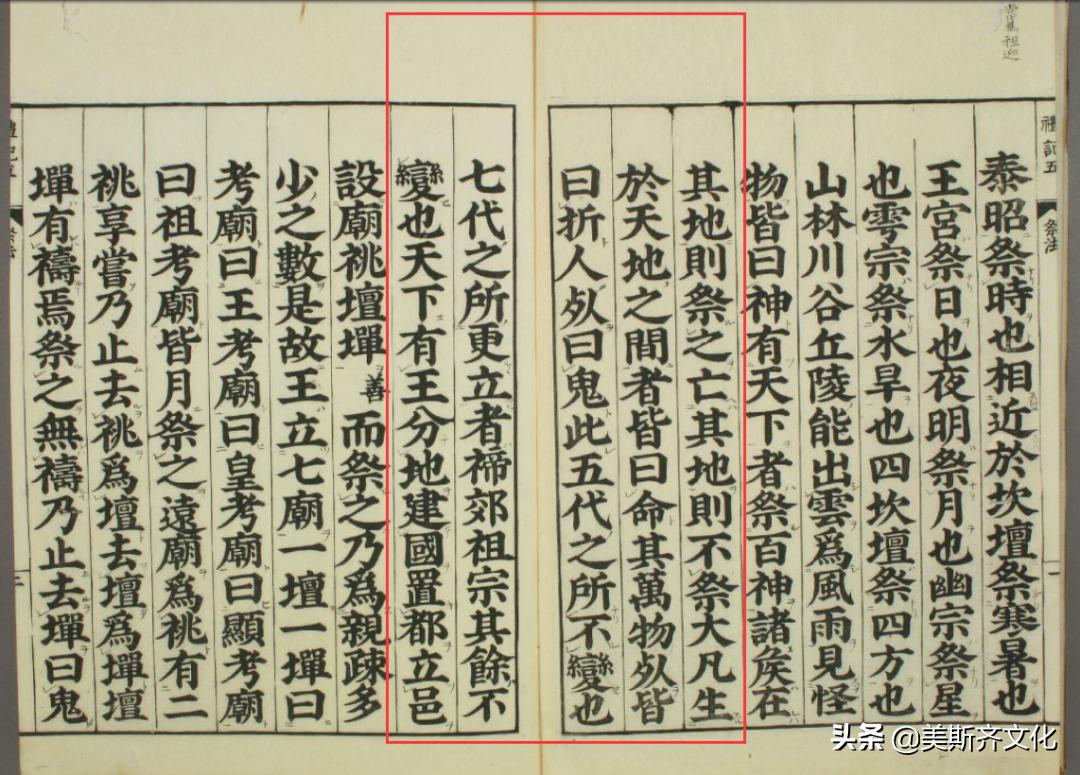 禮記五 祭法
泰昭祭時也相近於坎壇祭寒暑也
王宮祭日也夜明祭月也幽宗祭星
也雩宗祭水旱也四坎壇祭四方也
山林川谷丘陵能出雲爲風雨見怪
物皆曰神有天下者祭百神諸矦在
其地則祭之亡其地則不祭大凡生
於天地之間者皆曰命其萬物夗皆
曰折人夗曰鬼此五代之所不變也
七代之所更立者禘郊祖宗其餘不
變也天下有王分地建國置都立邑
設廟祧壇墠 善 而祭之乃爲親疎多
少之數是故王立七廟一壇一墠曰
考廟曰王考廟曰皇考廟曰顯考廟
曰祖考廟皆月祭之遠廟爲祧有二
祧享嘗乃止去祧爲壇去壇爲墠壇
墠有禱焉祭之無禱乃止去墠曰鬼
头条 @美斯齐文化